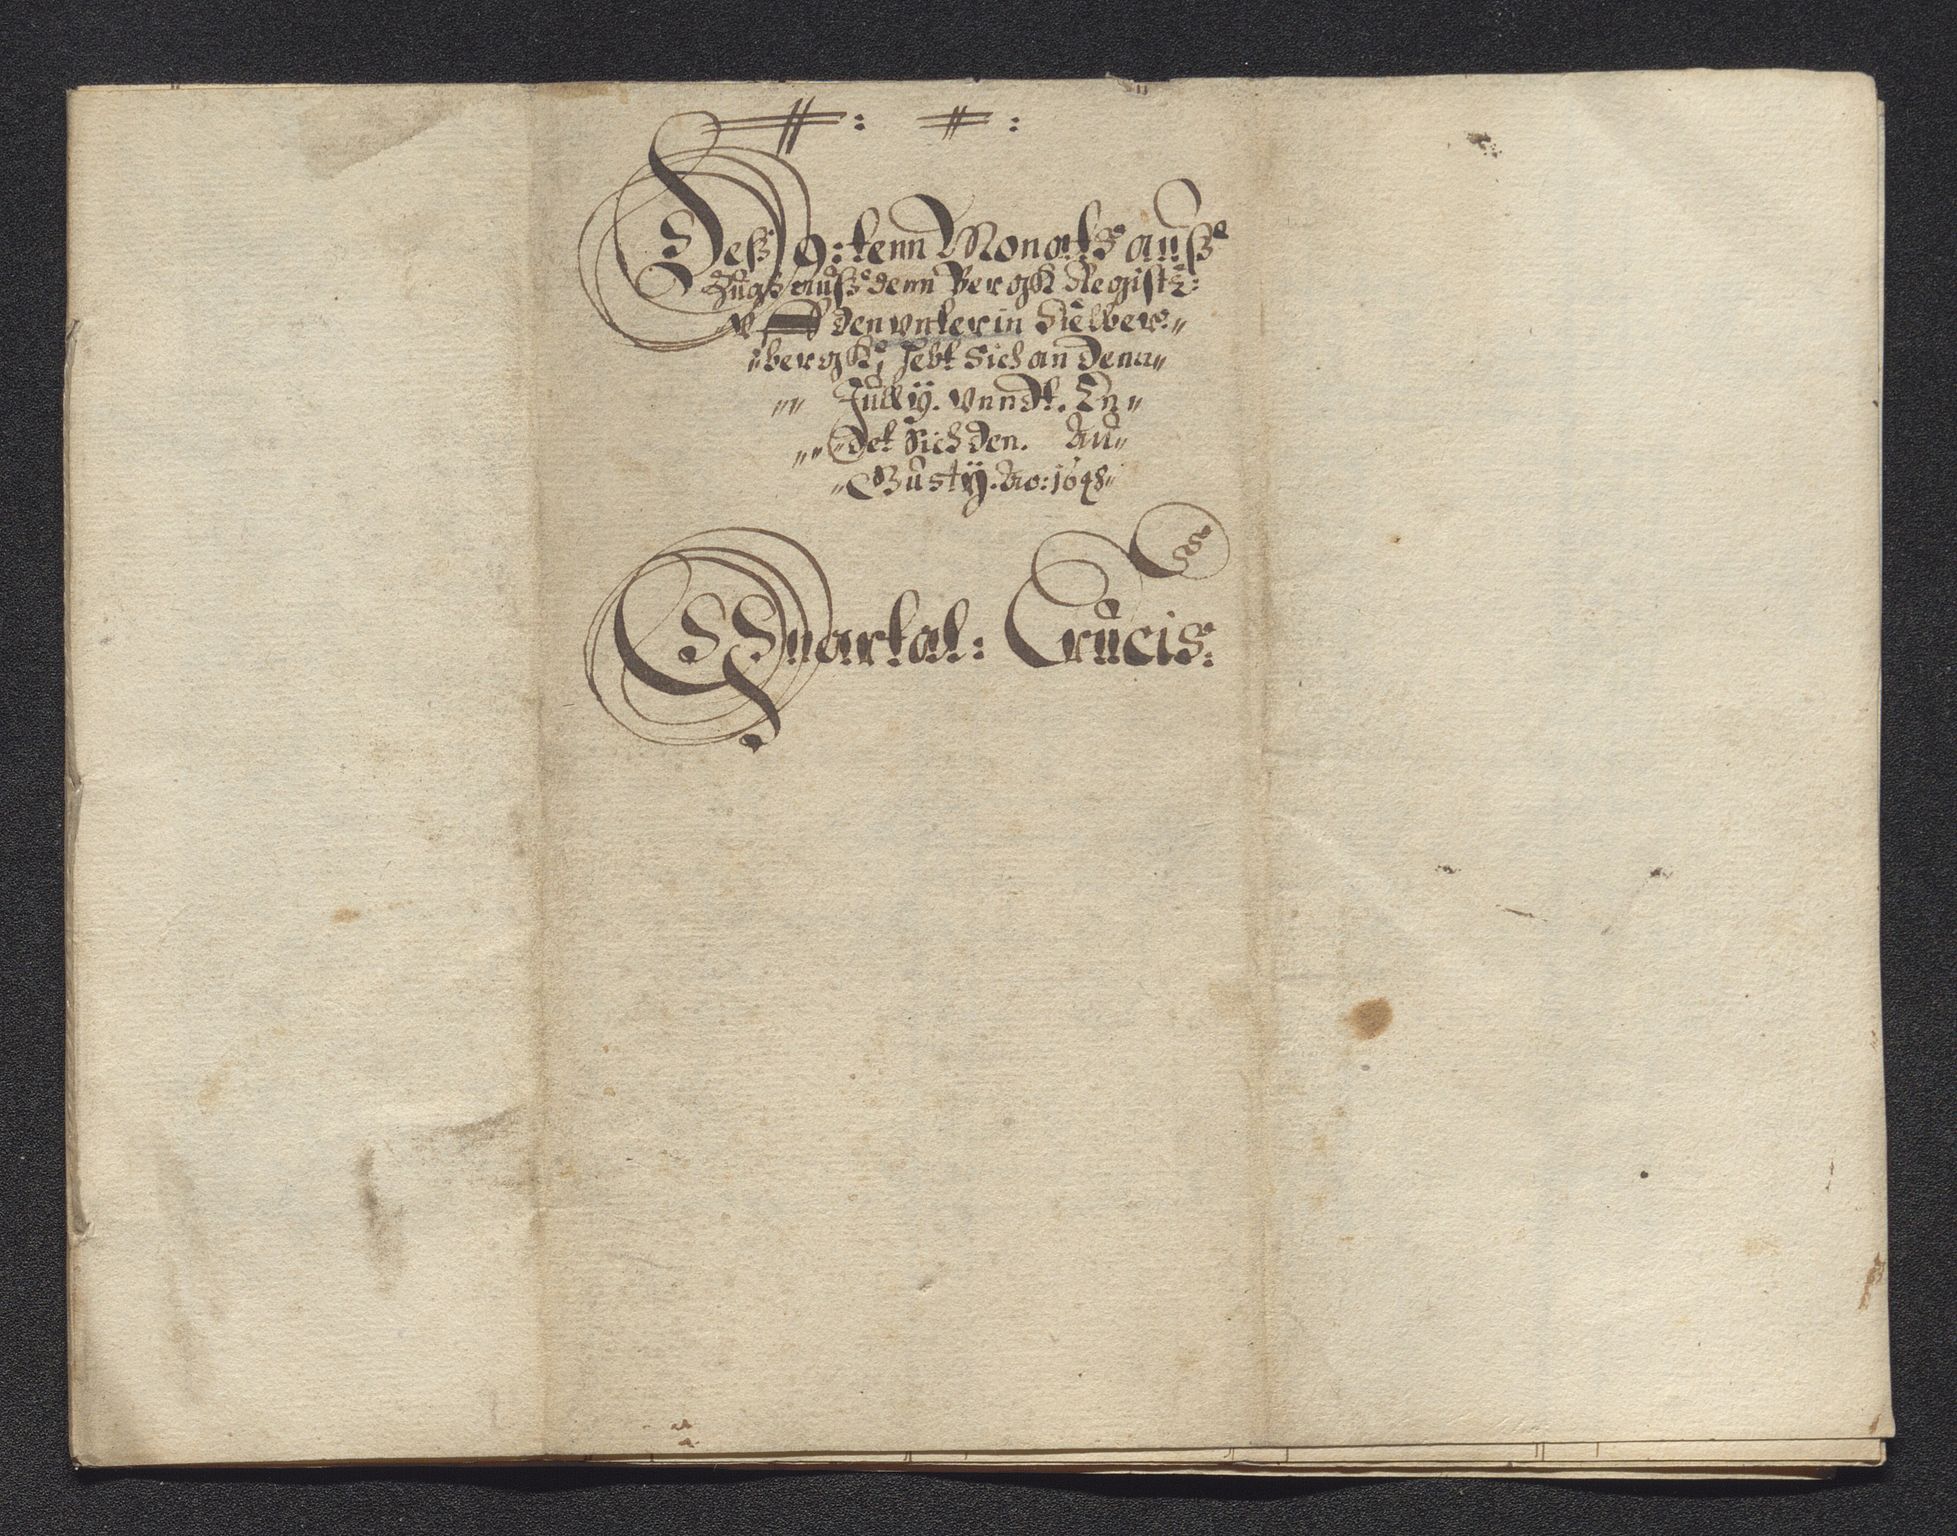 Deß 9: tenn Monats auß
Zugß auß denn Bergk Registr:
den vnter in Sielber„
„bergk, hebt Sich an denn„
„„ Jullÿ. vnndt. En„
„„det Sich den. Au„
„Gustÿ. Ao: 1648„
Quartal: Crucis: